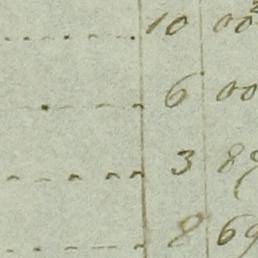 10 00
6 00
3 89
8 69